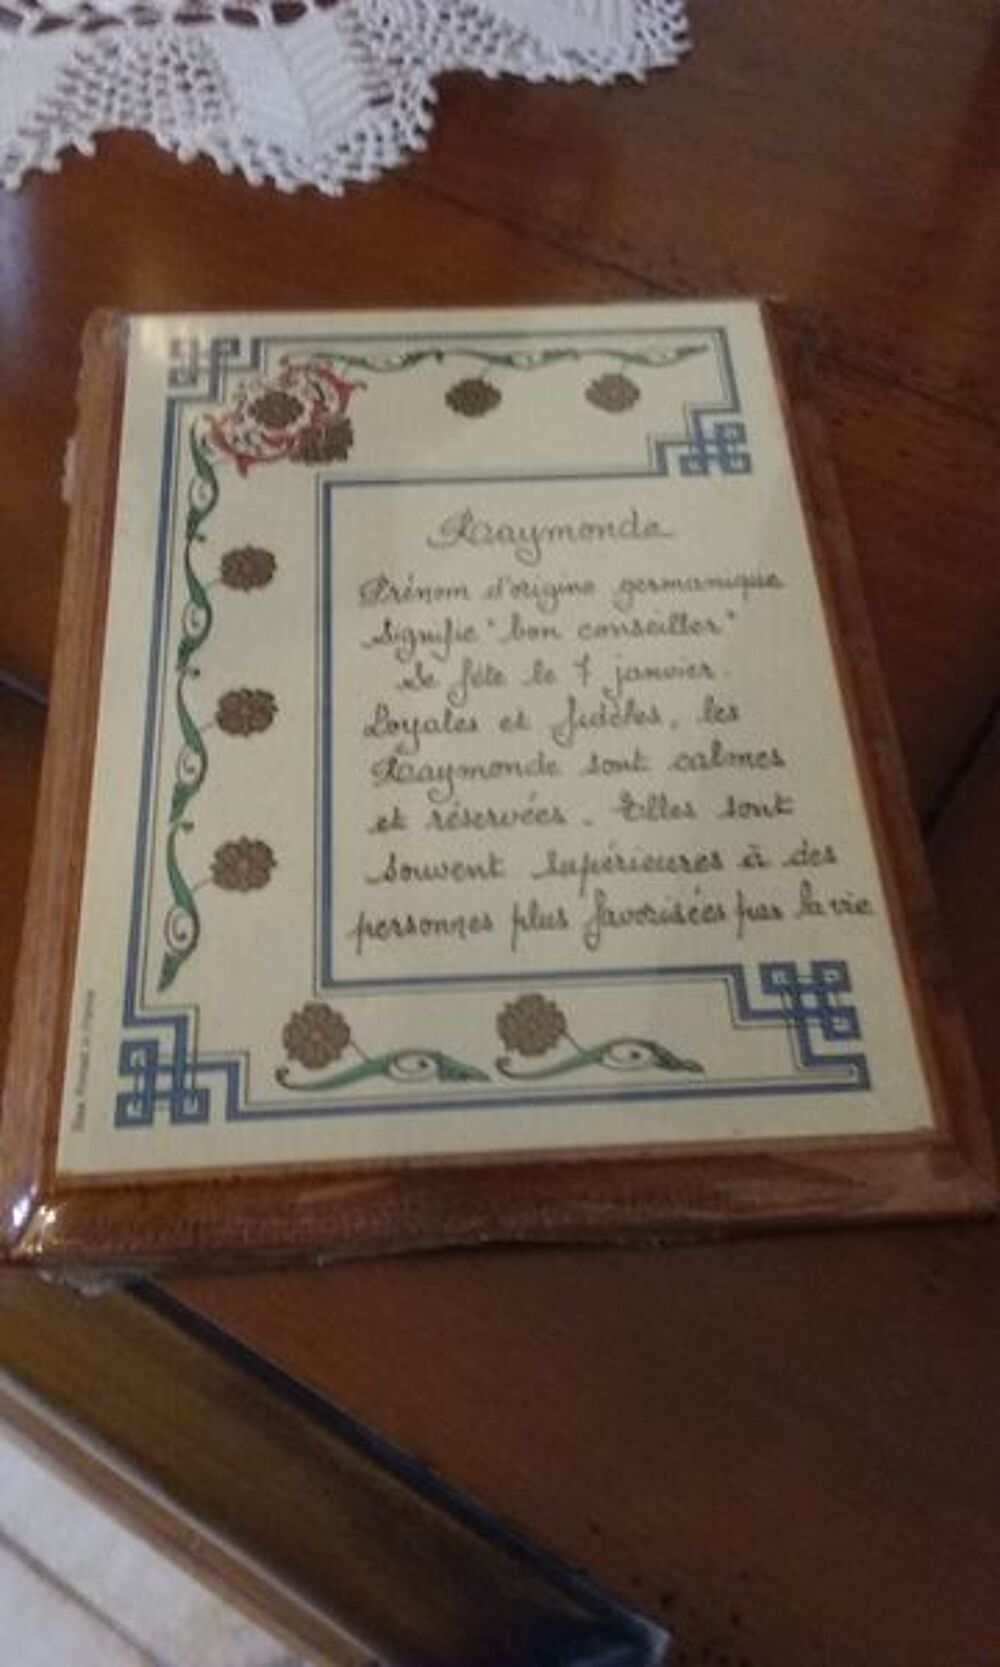 Raymonde
Prénom d'origine germanique
Signifie "bon conseiller"
Se fête le 7 janvier.
Loyales et fidèles, les
Raymonde sont calmes
et réservées. Elles sont
souvent supérieures à des
personnes plus favorisées par la vie